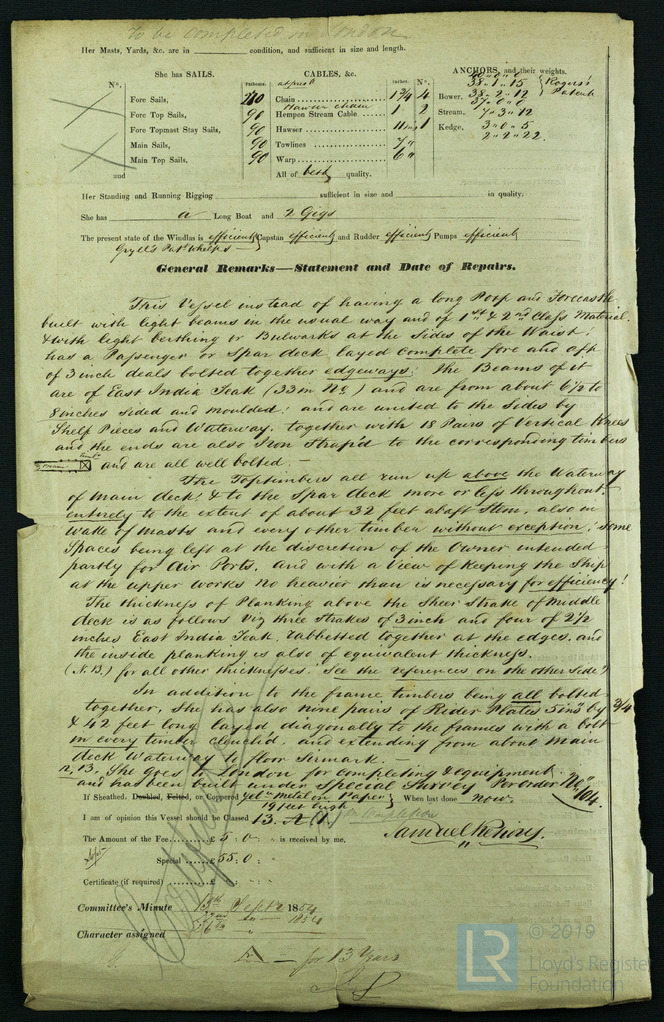 To be completed in London
Her Masts, Yards, &c. are in condition, and sufficient in size and length.
She has SAILS.
CABLES, &c.
ANCHORS, and their weights.
No.
Fathoms.
at present
Inches.
No.
Fore Sails,
Fore Top Sails,
Fore Topmast Stay Sails,
Main Sails,
Main Top Sails,
and
Chain 1 3/4 4
Hawser chain
Hempen Stream Cable 90 1 2
Hawser 90 11 ins 1
Towlines 90 7 "
Warp 90 6 "
All of best quality.
38 - 1 - 15
Bower. 38 - 2 - 12
37 - 0 - 0
Rogers's Patent
Stream, 7 - 3 - 12
Kedge, 3 - 0 - 5
2 - 2 - 22
Her Standing and Running Rigging sufficient in size and in quality.
She has a Long Boat and 2 Gigs
The present state of the Windlas is efficient Capstan efficient and Rudder efficient Pumps efficient
Gryll's Pat. Whelps
General Remarks—Statement and Date of Repairs.
This Vessel instead of having a long Poop and Forecastle
built with light beams in the usual way and of 1st & 2nd Class Material
& with light berthing or Bulwarks at the Sides of the Waist;
has a Passenger or Spar deck layed complete fore and aft
of 3 inch deals bolted together edgeways: The Beams of it
are of East India Teak (33 in No) and are from about 6 1/2 to
8 inches sided and moulded: and are united to the Sides by
Shelf Pieces and Waterway, together with 18 Pairs of Vertical Knees
and the ends are also Iron Strap'd to the corresponding timbers
and are all well bolted. —
The Toptimbers all run up above the Waterway
of main deck, & to the Spar deck more or less throughout:
entirely to the extent of about 32 feet abaft Stem, also in
wake of masts and every other timber without exception; some
Spaces being left at the discretion of the Owner intended
partly for Air Ports, and with a View of keeping the Ship
at the upper works no heavier than is necessary for efficiency!
The thickness of Planking above the Sheer Strake of Middle
deck is as follows Viz three strakes of 3 inch and four of 2 1/2
inches East India Teak, rabbetted together at the edges, and
the inside planking is also of equivalent thickness.
(N.B.) for all other thicknesses. See the references on the other side?
In addition to the frame timbers being all bolted
together, She has also nine pairs of Rider Plates 5 ins by 3/4
& 42 feet long layed diagonally to the frames with a bolt
in every timber clench'd, and extending from about Main
deck Waterway to floor Sirmark. —
N.B. She goes to London for completing & equipment:
and has been built under Special Survey Per Order
If Sheathed, Doubled, Felted, or Coppered Yel. Metal on Paper When last done now.
19 feet high
I am of opinion this Vessel should be Classed 13. A (1) on Completion
The Amount of the Fee £ 5 : 0 : is received by me,
Special £ 55 : 0 :
Certificate (if required) £ : :
Committee's Minute 15th Septr 1854
Character assigned
A — for 13 Years
© 2019
LR
Lloyd's Register
Foundation